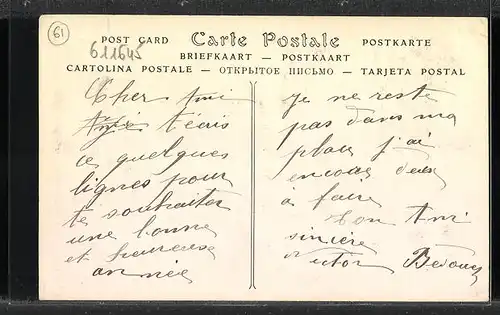 61
611645
POST CARD Carte Postale POSTKARTE
BRIEFKAART — POSTKAART
CARTOLINA POSTALE — ОТКРЫТОЕ ПИСЬМО — TARJETA POSTAL
Cher Ami
t'écris
ces quelques
lignes pour
te souhaiter
une bonne
et heureuse
année
Je ne reste
pas dans ma
place j'ai
encore deux
à faire
Ton Ami
sincère
Victor